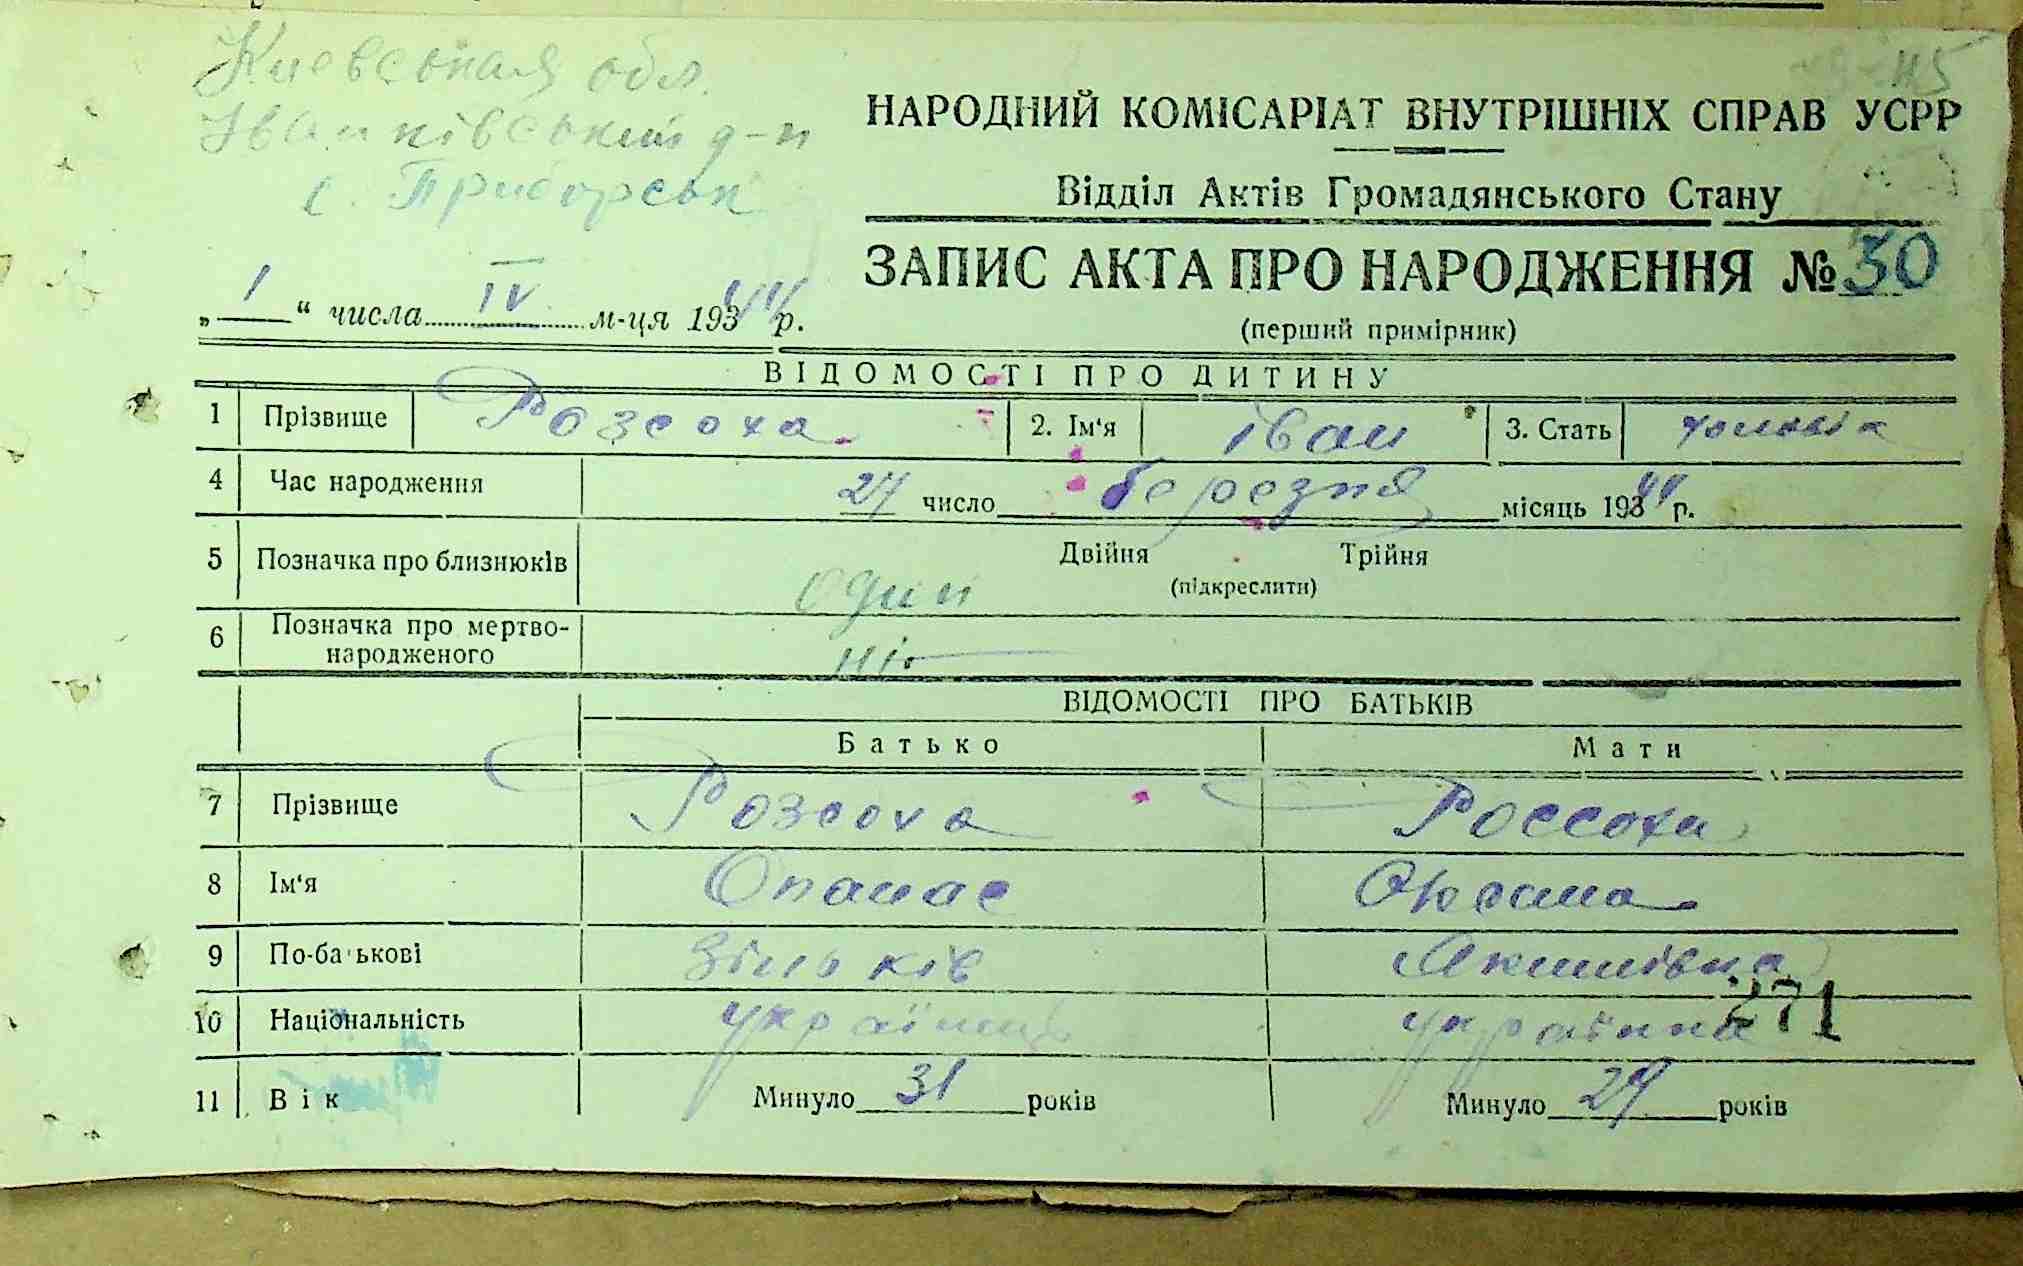 Киевськая обл.
Іванківський р-н
с. Приборськ
НАРОДНИЙ КОМІСАРІАТ ВНУТРІШНІХ СПРАВ УСРР
Відділ Актів Громадянського Стану
ЗАПИС АКТА ПРО НАРОДЖЕННЯ № 30
(перший примірник)
„ 1 “ числа IV м-ця 193 р.
ВІДОМОСТІ ПРО ДИТИНУ
1 Прізвище Розсоха 2. Ім'я Іван 3. Стать
4 Час народження число березня місяць 193 р.
5 Позначка про близнюків один Двійня Трійня
(підкреслити)
6 Позначка про мертво-
народженого ні
ВІДОМОСТІ ПРО БАТЬКІВ
Батько Мати
7 Прізвище Розсоха Россоха
8 Ім'я Опанас Оксана
9 По-батькові Зіньків Якимівна
10 Національність українец українка
271
11 Вік Минуло 31 років Минуло років